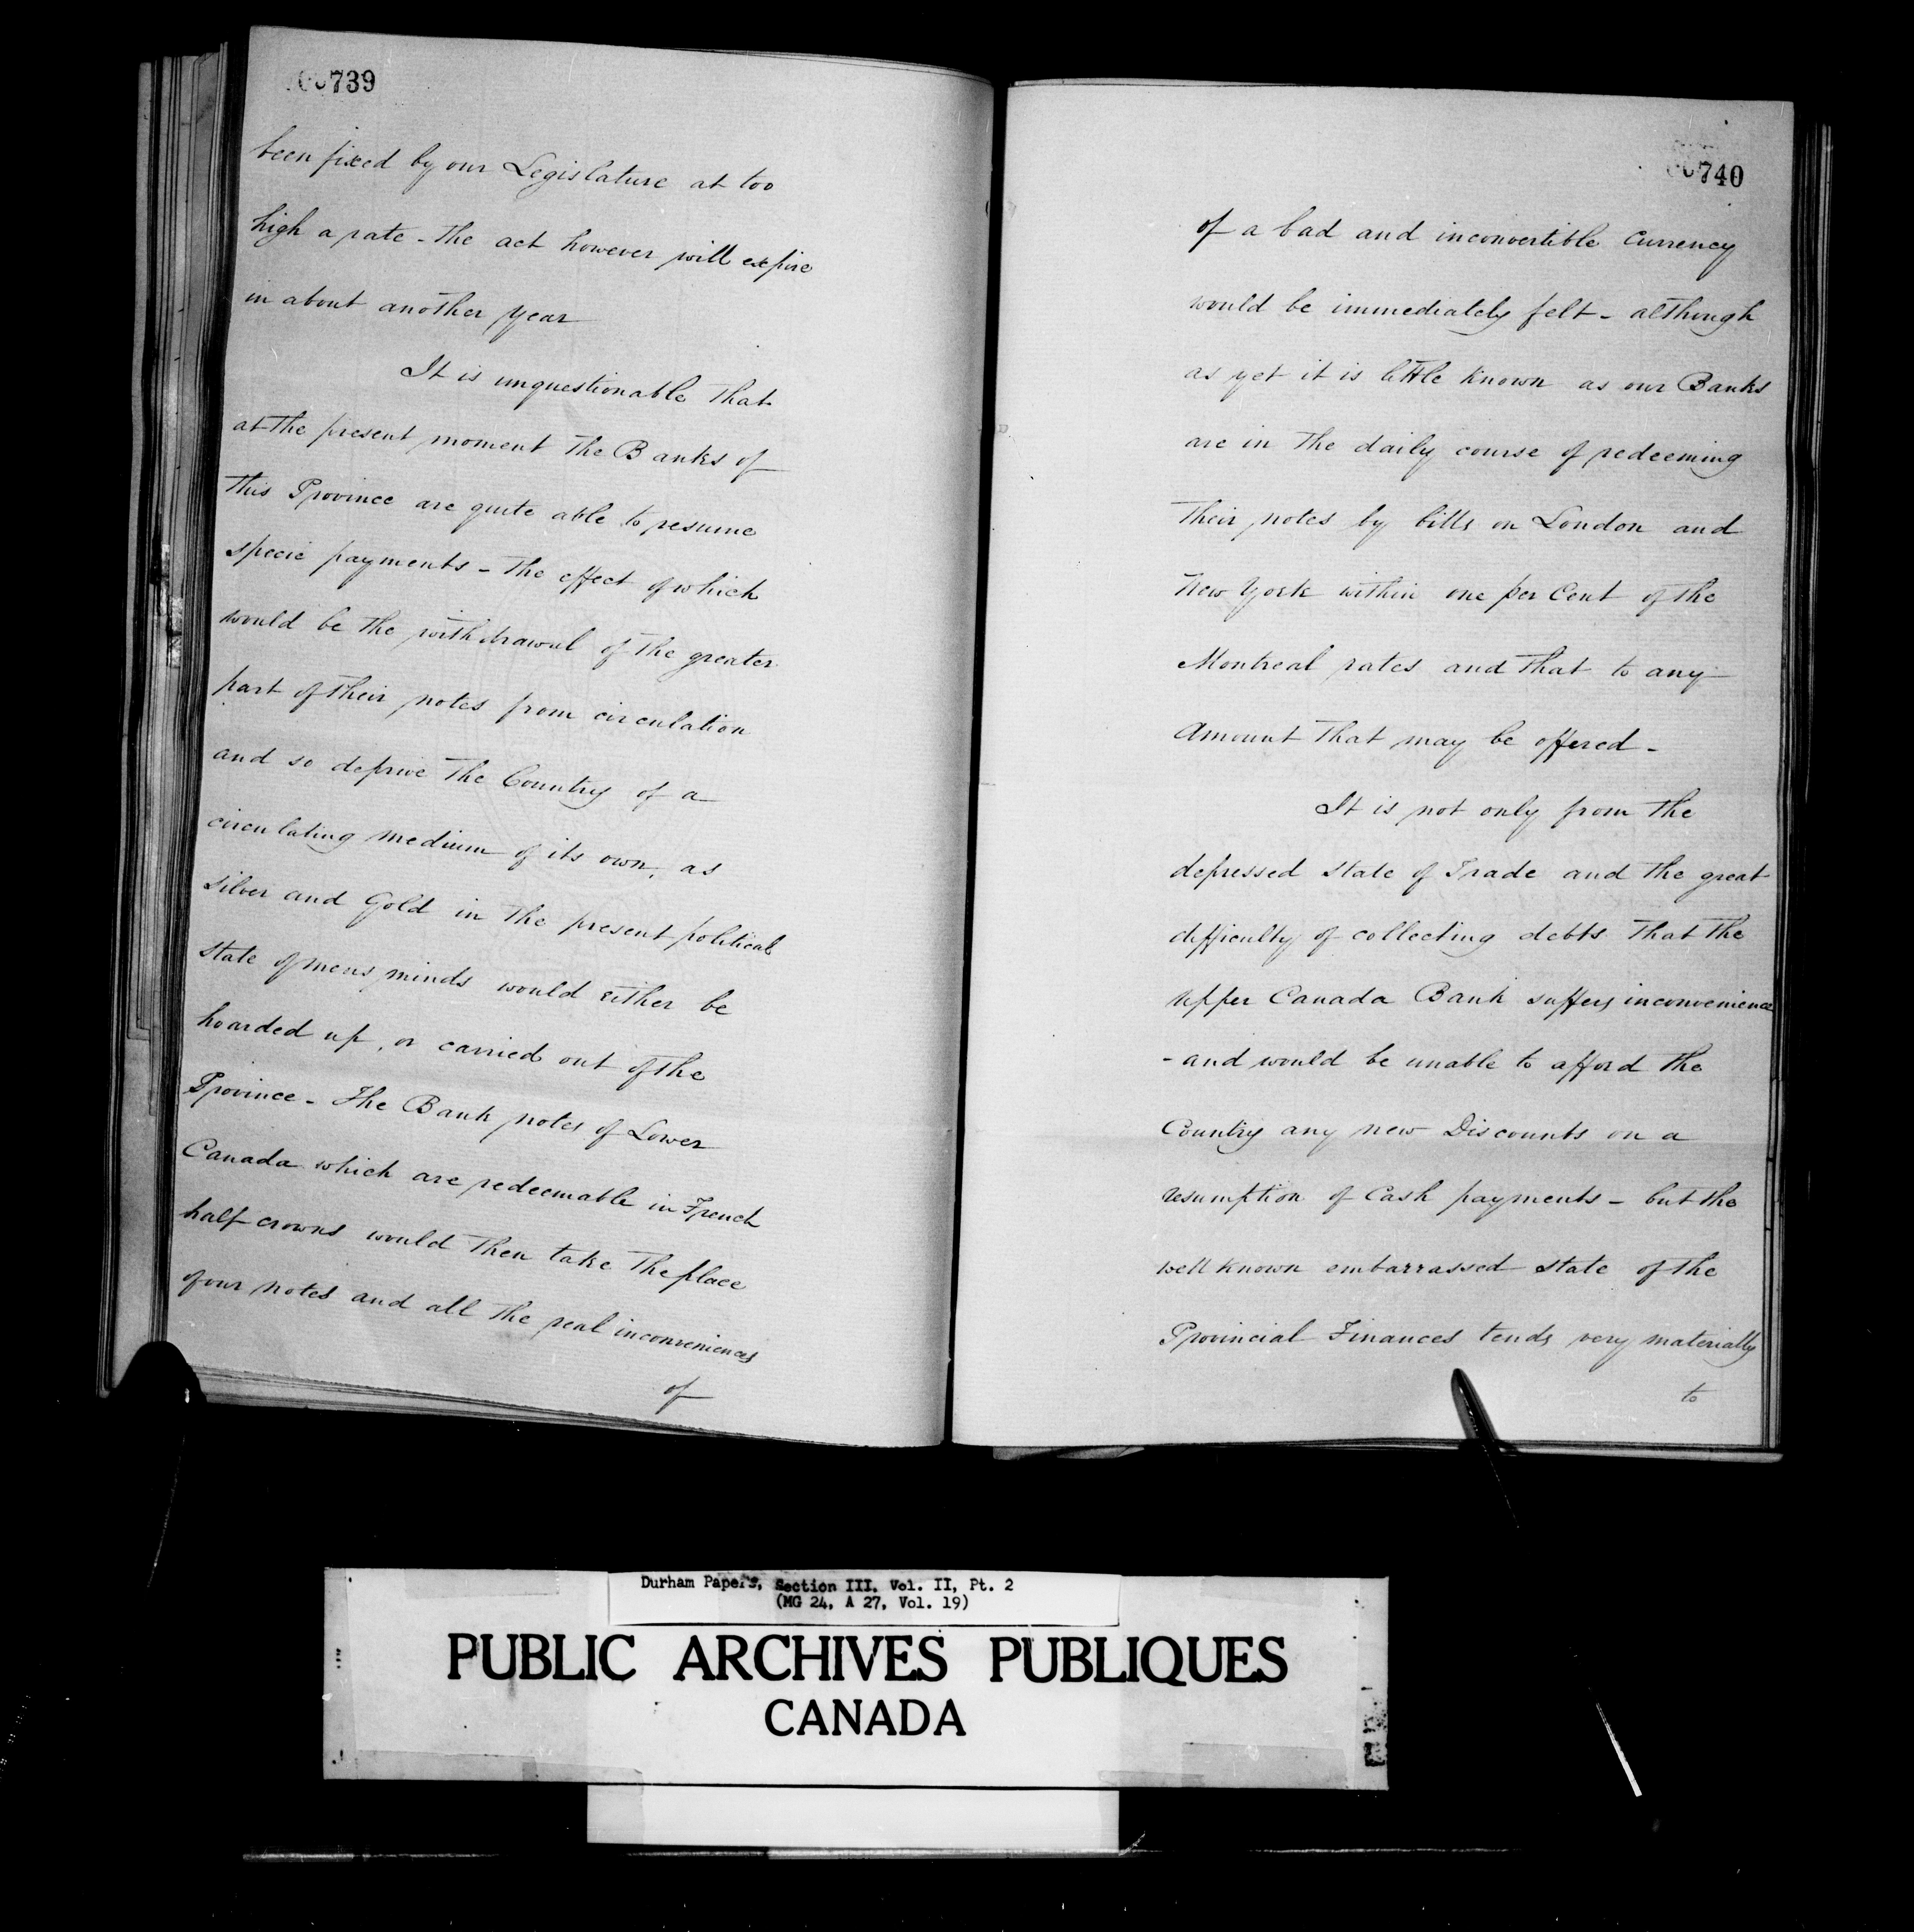 739
been fixed by our Legislature at too
high a rate - The act however will expire
in about another year
It is unquestionable That
at the present moment The Banks of
This Province are quite able to resume
specie payments - The effect of which
would be the withdrawal of the greater
part of their notes from circulation
and so deprive The Country of a
circulating medium of its own, as
silver and Gold in The present political
state of mens minds would either be
hoarded up, or carried out of the
Province - The Bank notes of Lower
Canada which are redeemable in French
half crowns would Then take The place
of our notes and all the real inconveniences
of
740
of a bad and inconvertible Currency
would be immediately felt - although
as yet it is little known as our Banks
are in The daily course of redeeming
Their notes by bills on London and
New York within one per Cent of the
Montreal rates and That to any
Amount That may be offered -
It is not only from the
depressed state of Trade and the great
difficulty of collecting debts That the
Upper Canada Bank suffers inconvenience
- and would be unable to afford the
Country any new Discounts on a
resumption of Cash payments - but the
well known embarrassed state of the
Provincial Finances tends very materially
to
Durham Papers, Section III. Vol. II, Pt. 2
(MG 24, A 27, Vol. 19)
PUBLIC ARCHIVES PUBLIQUES
CANADA